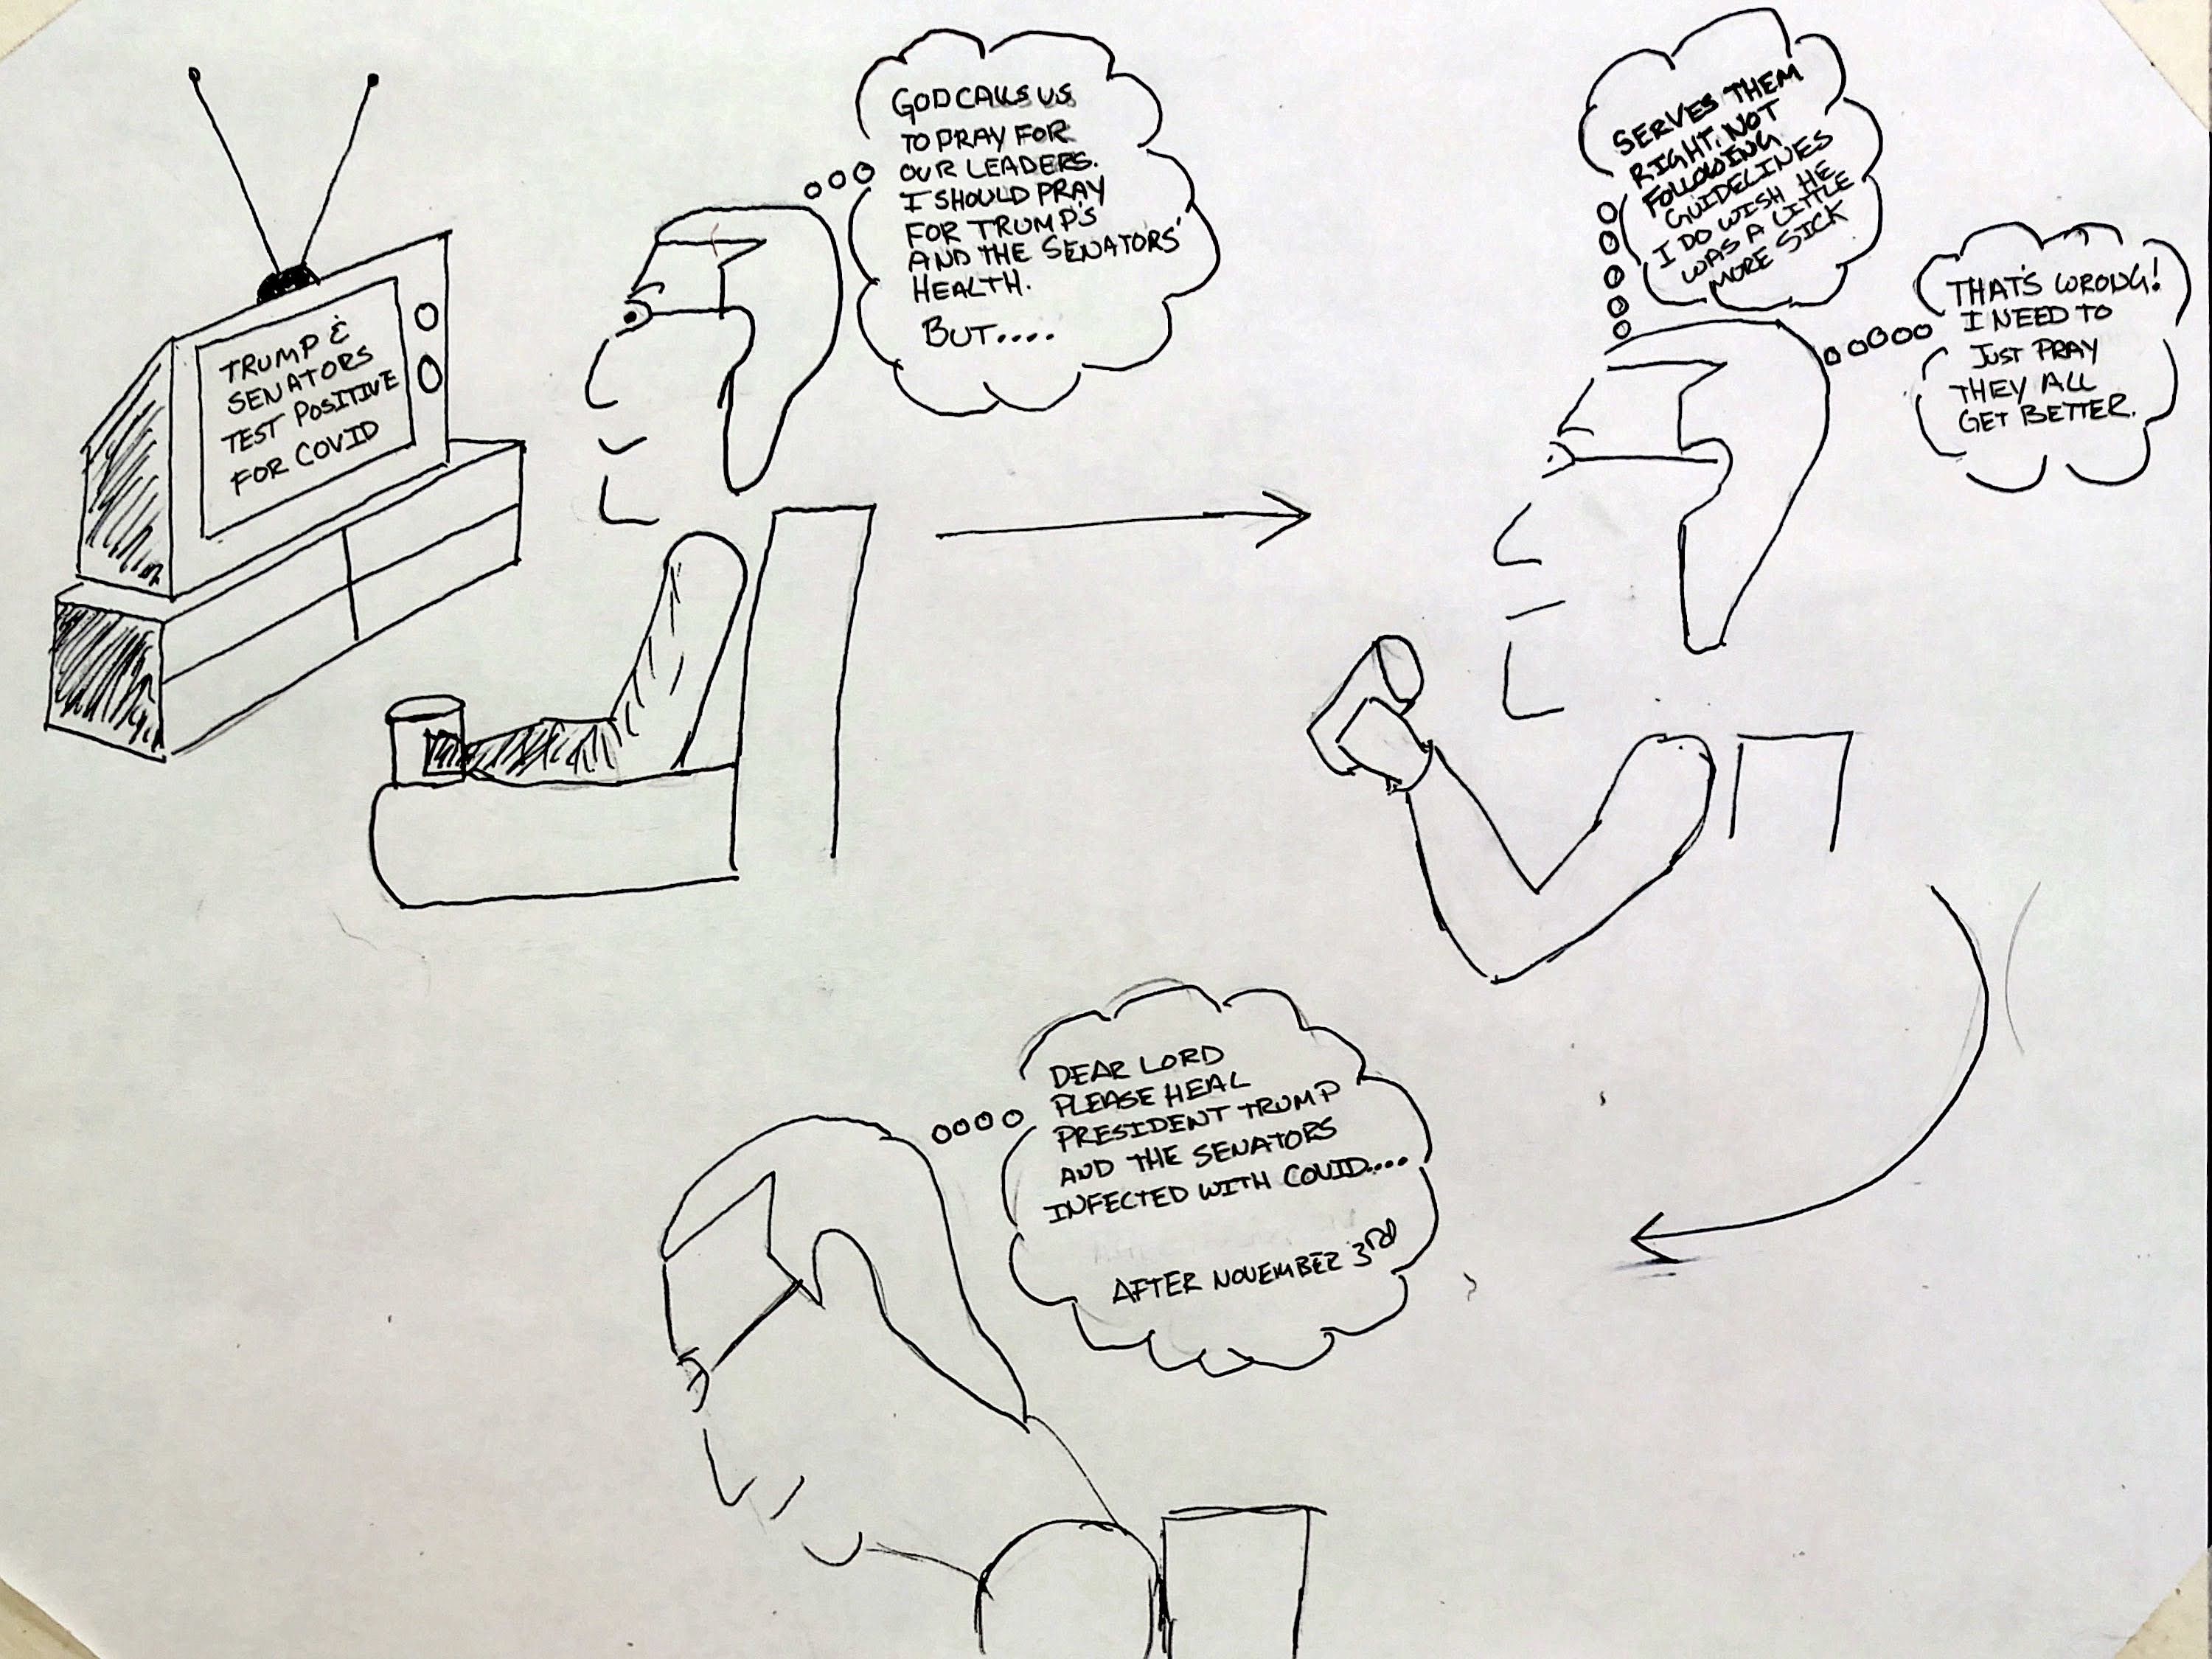 TRUMP &
SENATORS
TEST POSITIVE
FOR COVID
GOD CALLS US
TO PRAY FOR
OUR LEADERS.
I SHOULD PRAY
FOR TRUMP'S
AND THE SENATORS'
HEALTH.
BUT....
SERVES THEM
RIGHT, NOT
FOLLOWING
GUIDELINES
I DO WISH HE
WAS A LITTLE
MORE SICK
THAT'S WRONG!
I NEED TO
JUST PRAY
THEY ALL
GET BETTER.
DEAR LORD
PLEASE HEAL
PRESIDENT TRUMP
AND THE SENATORS
INFECTED WITH COVID....
AFTER NOVEMBER 3RD